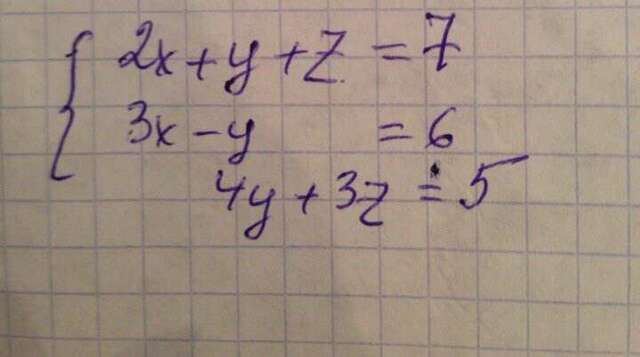 2x + y + z = 7
3x - y = 6
4y + 3z = 5